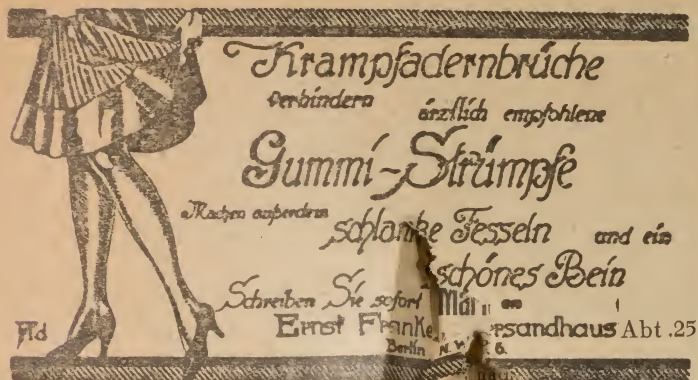 Krampfadernbrüche
verhindern ärztlich empfohlene
Gummi-Strümpfe
Machen außerdem
schlanke Fesseln und ein
schönes Bein
Schreiben Sie sofort
Ernst Franke, ersandhaus Abt.25
Berlin N.W. 6.